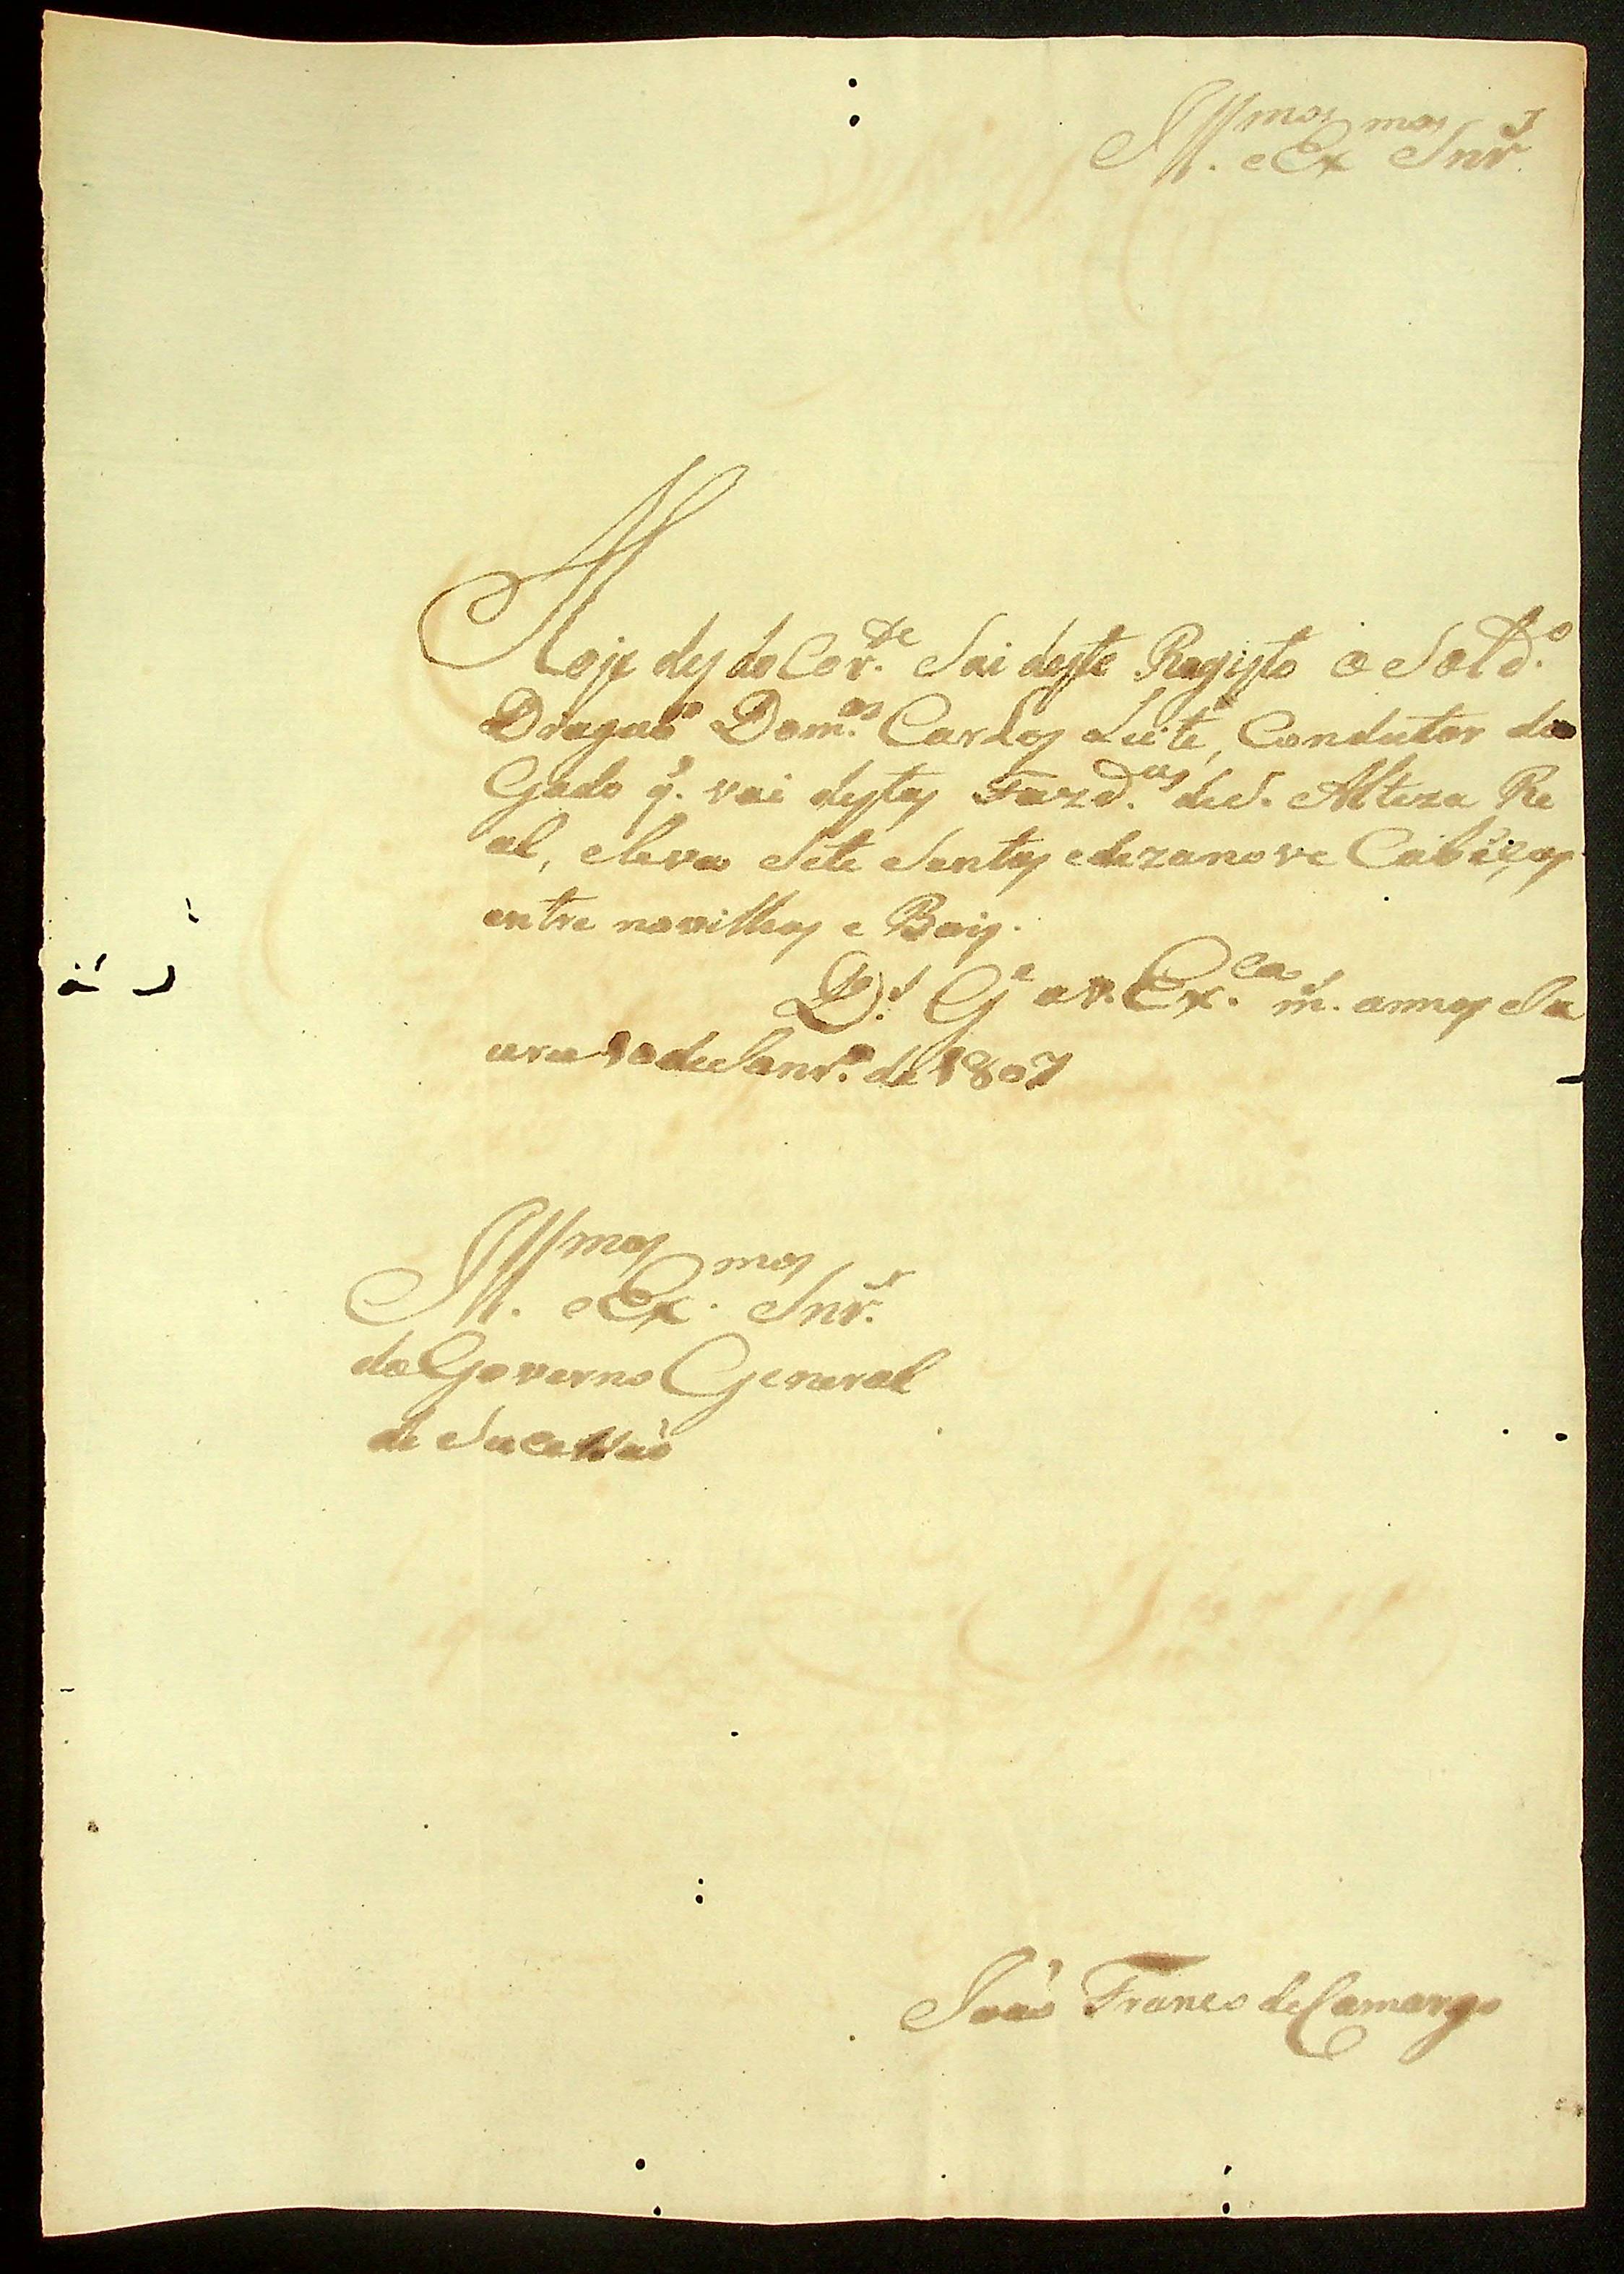 Ill.mos e Ex.mos Snr.s
Hoje des do Cor.te Sai deste Registo o Sold.o
Dragaõ Dom.os Carlos Leite, Condutor do
Gado q. vai destas Fazd.as de S. Alteza Re
al, eleva Sete Sentas e dezanove Cabeças
entre novilhos e Bois.
D.s G.e a V. Ex.cas m. annos Sa
10 de Janr.o de 1807
Ill.mos e Ex.mos Snr.s
do Governo General
de Sucessaõ
Joaõ Franco de Camargo